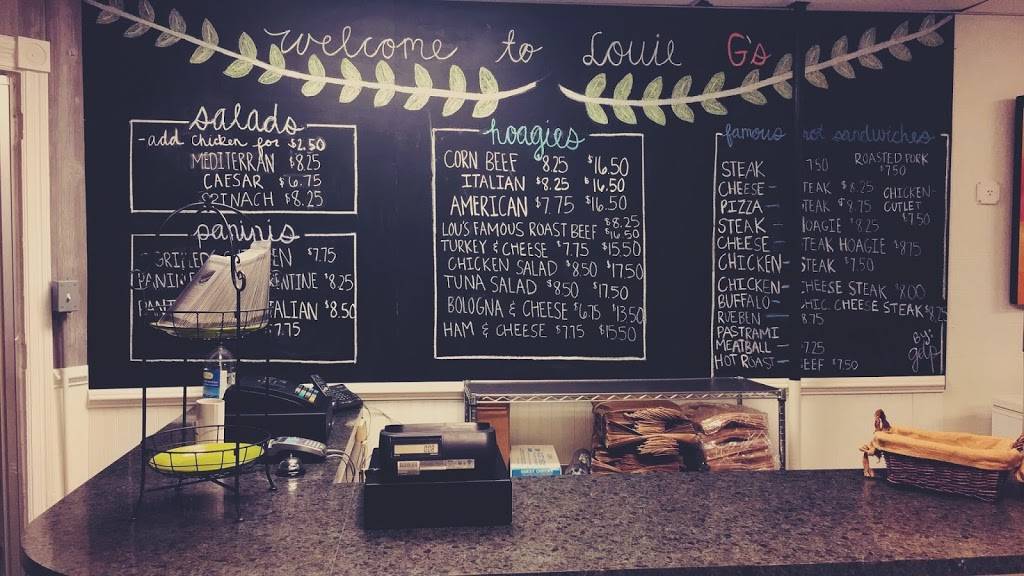 welcome to Louie G's
salads
-add Chicken for $2.50
MEDITERRAN $8.25
CAESAR $6.75
SPINACH $8.25
paninis
$7.75
$8.25
$8.50
7.75
hoagies
CORN BEEF 8.25 $16.50
ITALIAN $8.25 $16.50
AMERICAN $7.75 $16.50
LOU'S FAMOUS ROAST BEEF $8.25 $16.50
TURKEY & CHEESE $7.75 $15.50
CHICKEN SALAD $8.50 $17.50
TUNA SALAD $8.50 $17.50
BOLOGNA & CHEESE $6.75 $13.50
HAM & CHEESE $7.75 $15.50
famous hot sandwiches
STEAK 7.50
CHEESE- TEAK $8.25
PIZZA- TEAK $8.75
STEAK- HOAGIE $8.25
CHEESE- TEAK HOAGIE $8.75
CHICKEN- STEAK $7.50
CHICKEN- CHEESE STEAK $8.00
BUFFALO- CHIC CHEESE STEAK $8.25
RUEBEN 8.75
PASTRAMI
MEATBALL- 7.25
HOT ROAST- BEEF $7.50
ROASTED PORK
$7.50
CHICKEN-
CUTLET
$7.50